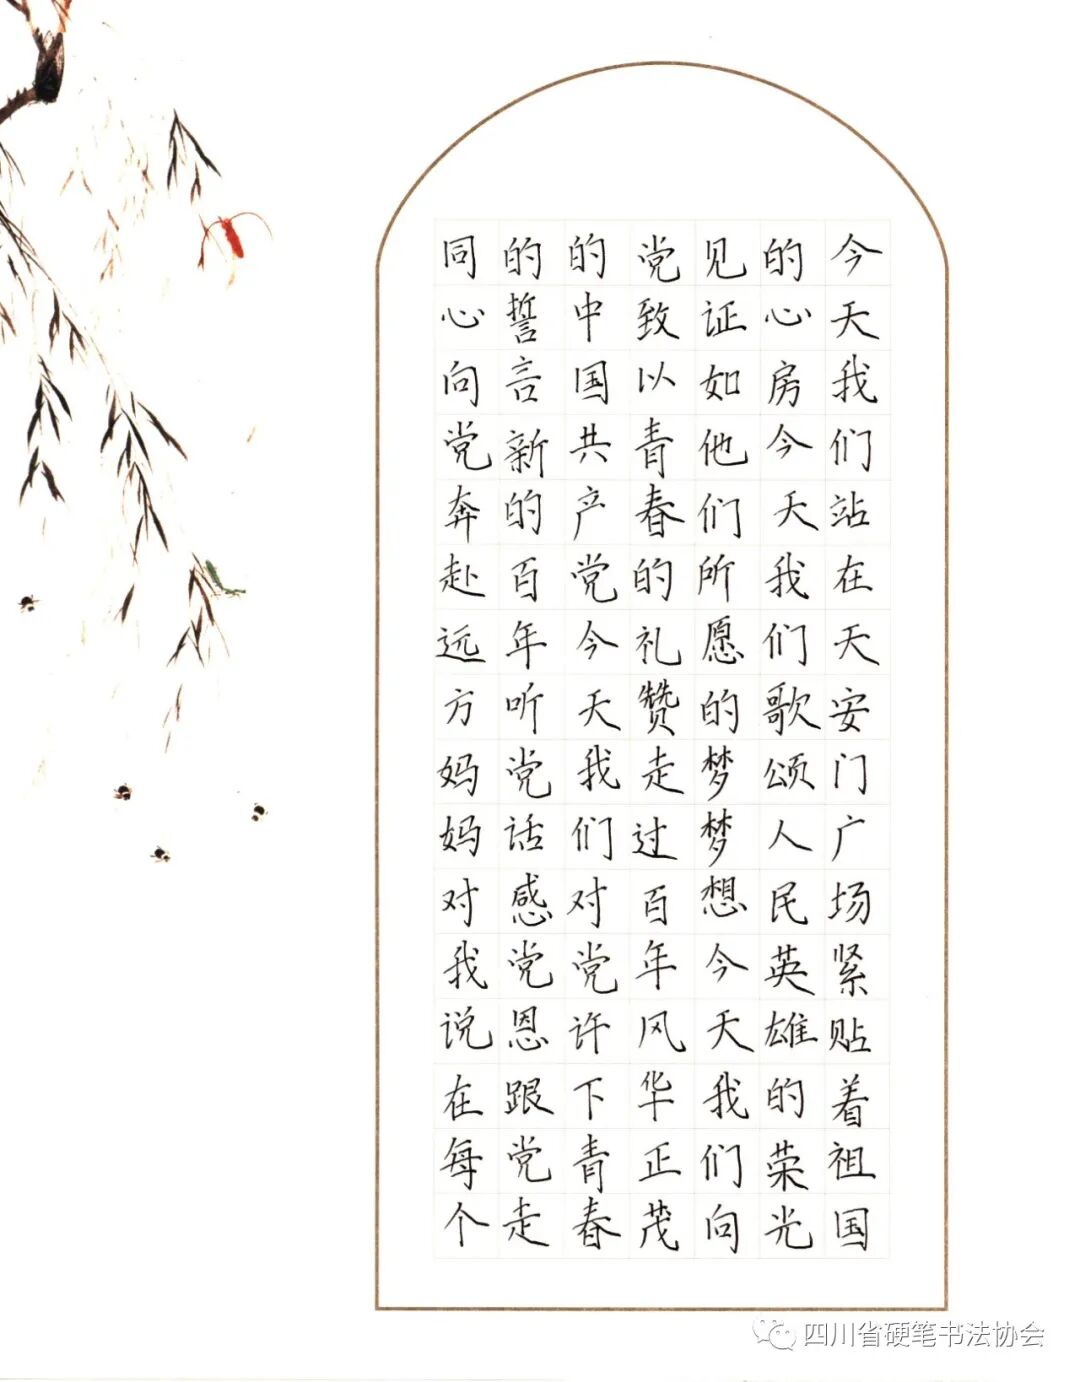 今天我们站在天安门广场紧贴着祖国
的心房今天我们歌颂人民英雄的荣光
见证如他们所愿的梦梦想今天我们向
党致以青春的礼赞走过百年风华正茂
的中国共产党今天我们对党许下青春
的誓言新的百年听党话感党恩跟党走
同心向党奔赴远方妈妈对我说在每个
四川省硬笔书法协会